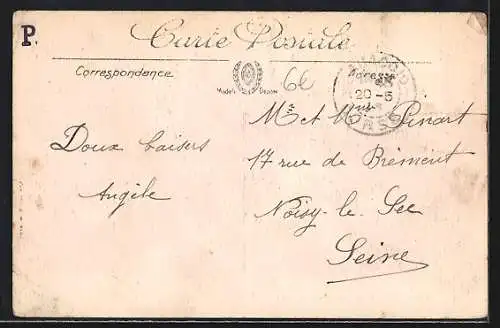 P.
Carte Postale
Correspondance
Adresse
Modèle Déposé
62
20-5
CORSE
Mr et Mme Pinart
Doux baisers
17 rue de Brément
Angèle
Noisy-le-Sec
Seine